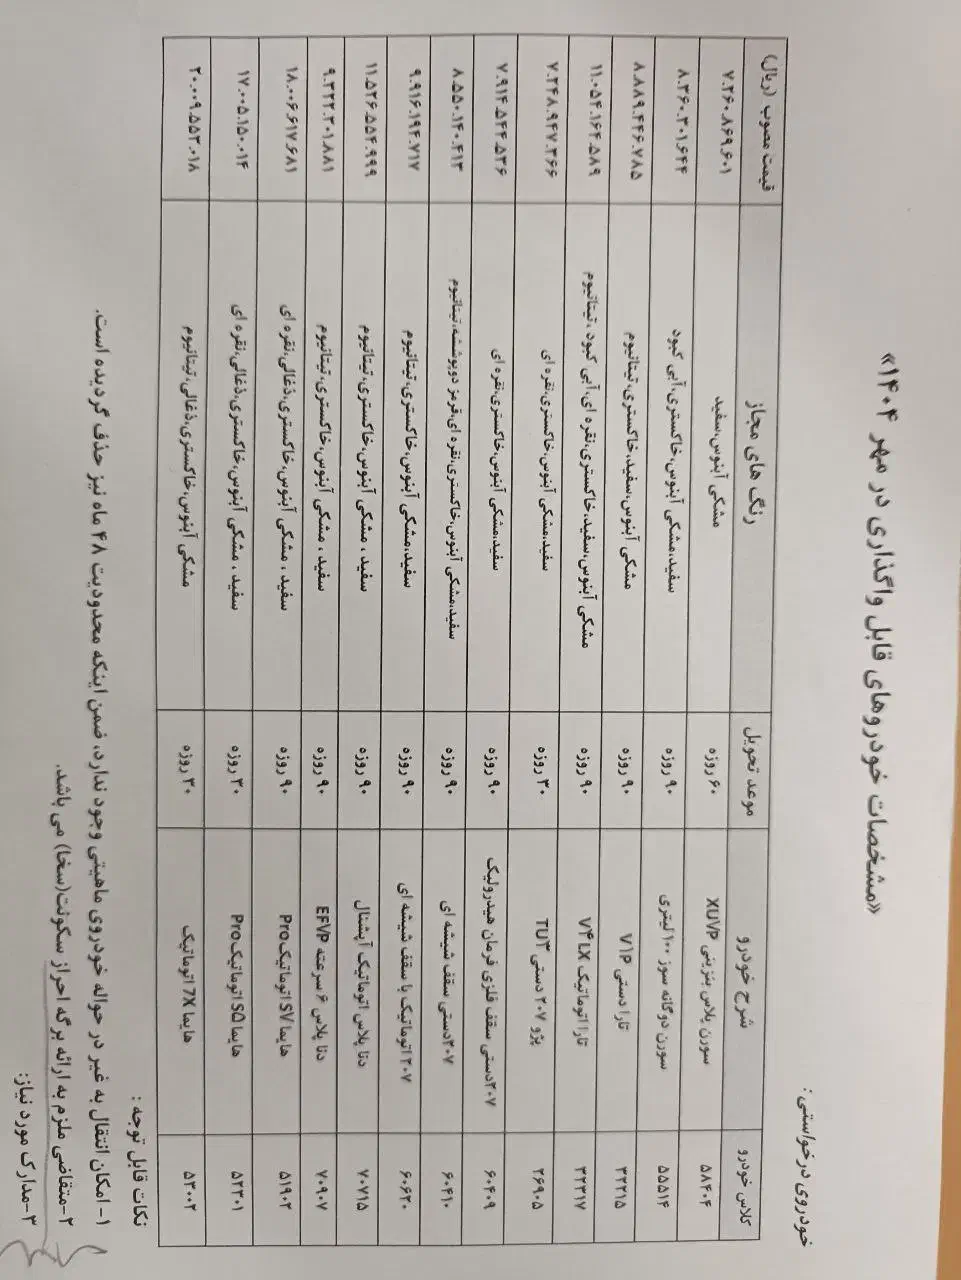 «مشخصات خودروهای قابل واگذاری در مهر ۱۴۰۴»
خودروی درخواستی :
کلاس خودرو شرح خودرو موعد تحویل رنگ های مجاز قیمت مصوب (ریال)
۵۸۴۰۴ سورن پلاس بنزینی XUVP ۶۰ روزه مشکی آبنوس،سفید ۷.۲۶۰.۸۶۹.۶۰۱
۵۵۵۱۴ سورن دوگانه سوز ۱۰۰ لیتری ۹۰ روزه سفید،مشکی آبنوس،خاکستری،آبی کبود ۸.۲۶۰.۳۰۱.۶۴۴
۳۲۲۱۵ تارا دستی V1P ۹۰ روزه مشکی آبنوس،سفید،خاکستری،تیتانیوم ۸.۸۸۹.۴۴۶.۷۸۵
۳۲۳۱۷ تارا اتوماتیک V۴ LX ۹۰ روزه مشکی آبنوس،سفید،خاکستری،نقره ای،آبی کبود ،تیتانیوم ۱۱.۰۵۴.۱۶۴.۵۸۹
۲۶۹۰۵ پژو ۲۰۷ دستی TU۳ ۳۰ روزه سفید،مشکی آبنوس،خاکستری،نقره ای ۷.۲۴۸.۹۴۷.۲۶۶
۶۰۴۰۹ ۲۰۷دستی سقف فلزی فرمان هیدرولیک ۹۰ روزه سفید،مشکی آبنوس،خاکستری،نقره ای ۷.۹۱۴.۵۴۴.۵۲۶
۶۰۴۱۰ ۲۰۷دستی سقف شیشه ای ۹۰ روزه سفید،مشکی آبنوس،خاکستری،نقره ای،قرمز دوپوششه،تیتانیوم ۸.۵۵۰.۱۴۰.۴۱۳
۶۰۶۲۰ ۲۰۷ اتوماتیک با سقف شیشه ای ۹۰ روزه سفید،مشکی آبنوس،خاکستری،تیتانیوم ۹.۹۱۶.۱۹۴.۷۱۷
۷۰۷۱۵ دنا پلاس اتوماتیک آپشنال ۹۰ روزه سفید ، مشکی آبنوس،خاکستری،تیتانیوم ۱۱.۵۲۶.۵۵۴.۹۹۹
۷۰۹۰۷ دنا پلاس ۶ سرعته EFVP ۹۰ روزه سفید ، مشکی آبنوس،خاکستری،تیتانیوم ۹.۳۲۲.۳۰۱.۸۸۱
۵۱۹۰۲ هایما SV اتوماتیک Pro ۹۰ روزه سفید ، مشکی آبنوس،خاکستری،ذغالی،نقره ای ۱۸.۰۰۶.۶۱۷.۶۸۱
۵۲۳۰۱ هایما SQ اتوماتیک Pro ۳۰ روزه سفید ، مشکی آبنوس،خاکستری،ذغالی،نقره ای ۱۷.۰۰۵.۱۵۰.۰۱۴
۵۳۰۰۲ هایما 7X اتوماتیک ۳۰ روزه مشکی آبنوس،خاکستری،ذغالی،تیتانیوم ۲۰.۰۰۹.۵۵۳.۰۱۸
نکات قابل توجه :
۱- امکان انتقال به غیر در حواله خودروی ماهیتی وجود ندارد، ضمن اینکه محدودیت ۴۸ ماه نیز حذف گردیده است.
۲-متقاضی ملزم به ارائه برگه احراز سکونت(سخا) می باشد.
۳-مدارک مورد نیاز: